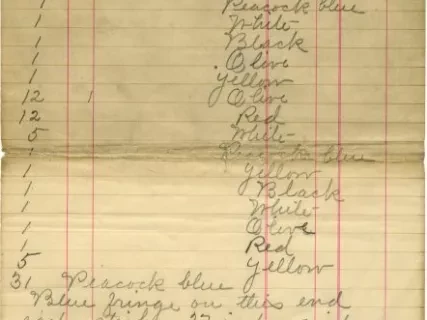 1 Peacock blue
1 White
1 Black
1 Olive
1 Yellow
12 1 Olive
12 Red
5 White
1 Peacock blue
1 Yellow
1 Black
1 White
1 Olive
1 Red
5 Yellow
31 Peacock blue
Blue fringe on this end